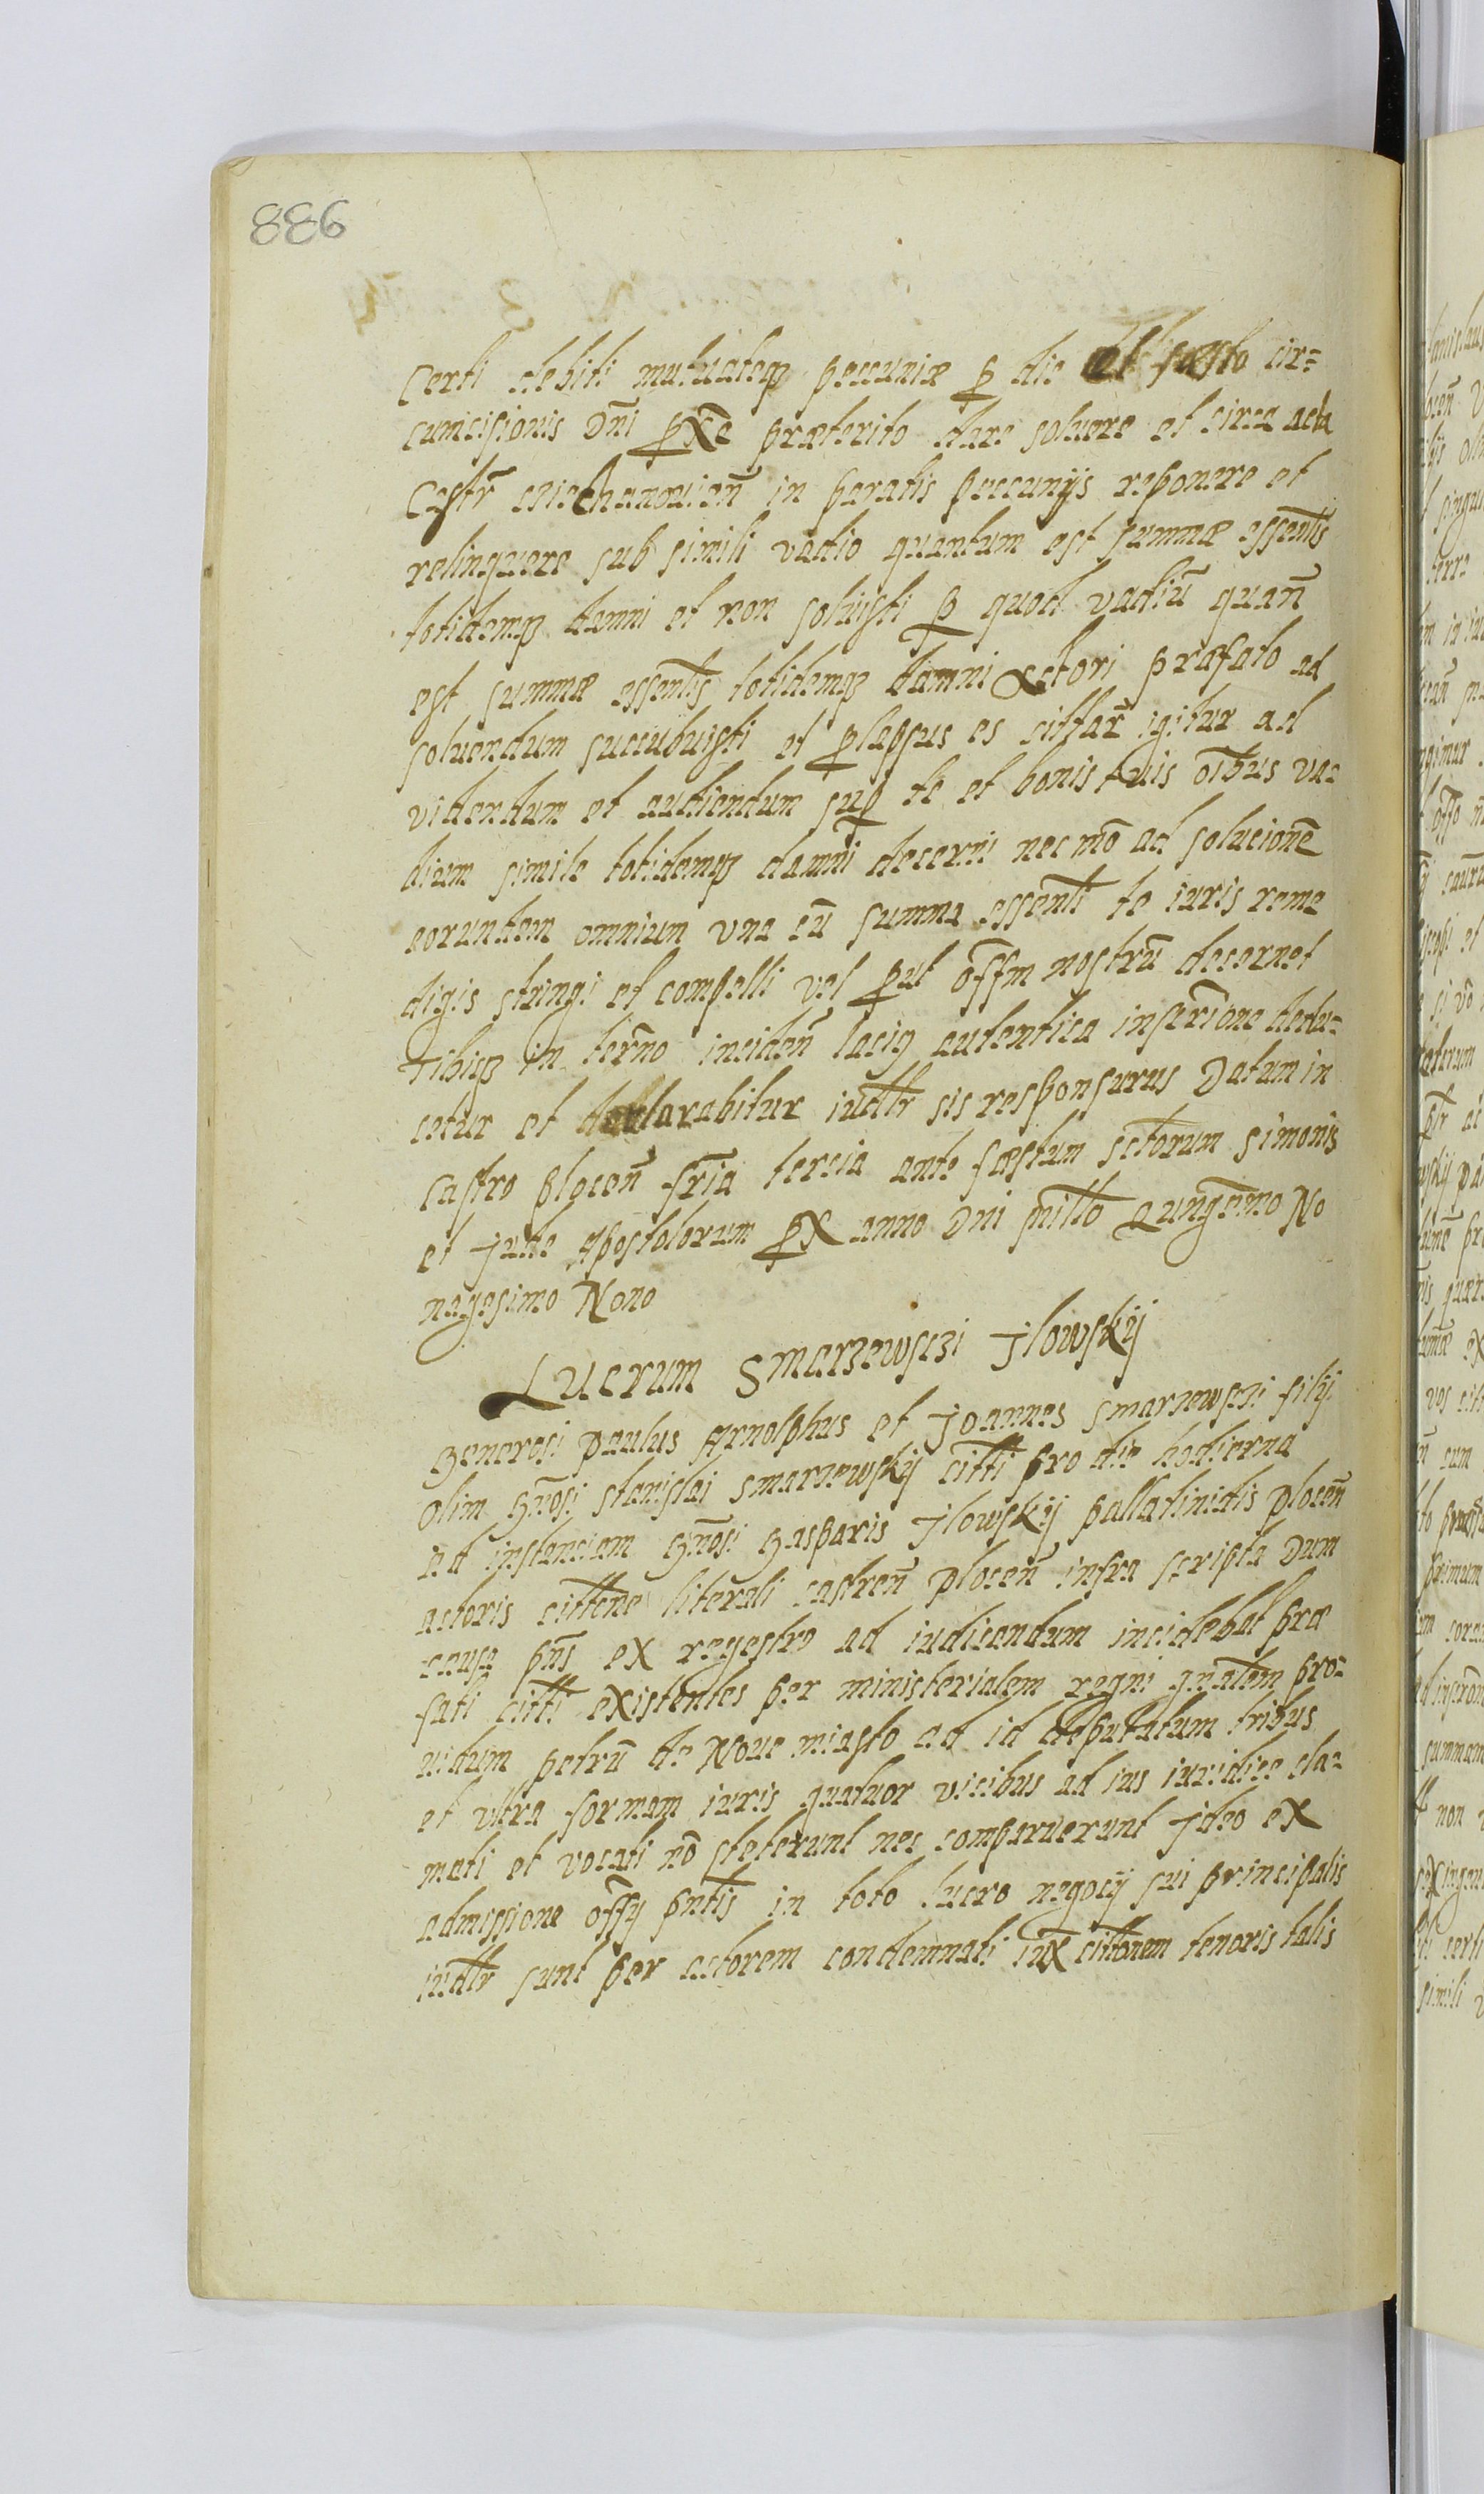 886
Certi debiti mutuateqз pecuniæ p die et fæsto cir=
cumcisionis Dñi pxe præterito dare soluere et circa acta
Castr̃ cziechanouien̄ in paratis pecunijs reponere et
relinquere sub simili vadio quantum est summæ essentis
totidemqз damni et non soluisti p quod vadiū quan̄
est summæ essentis totidemqз damni Actori præfato ad
soluendum succubuisti et plapsus es cittar̃ igitur ad
videndum et audiendum sup te et bonis tuis oībus va=
dium simile totidemqз damni decerni nec nō ad solucionē
eorundem omnium vna cū summa essenti te iuris reme
digis stringi et compelli vel put offm nostrū decernet
Tibiqз in termo inciden̄ lacig autentica inscriōne dedu=
cetur et declarabitur iudltr sis responsurus Datum in
castro plocen̄ fria tercia ante fæstum sctorum Simonis
et Jude Apostolorum px anno Dni millo Qungemo No
nagesimo Nono
Lucrum Smarzewsczi Jlowskij
Generosi Paulus Arnolphus et Joannes Smarzewsczi filij
olim gnosi Stanislai Smarzewskij citti pro die hodierna
ad instanciam gnosi Gasparis Jlowskij pallatinidis plocen̄
actoris cittone literali castren̄ plocen̄ infra scripta Dum
causa pns ex regestro ad iudicandum incidebat præ
fati citti existentes per ministerialem regni gnalem pro=
uidum petrū de Noue miasto ad id deputatum tribus
et vltra formam iuris quatuor vicibus ad ius iuridice cla=
mati et vocati nō steterunt nec comparuerunt Jdeo ex
admissione offy pntis in toto lucro negocij sui principalis
iudltr sunt per actorem condemnati iux cittonem tenoris talis